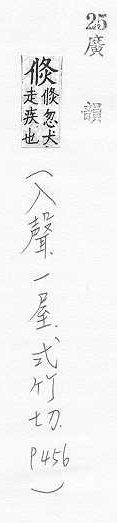 25
廣韻
倐
倐忽犬
走疾也
(入聲.一屋.式竹切.P456)